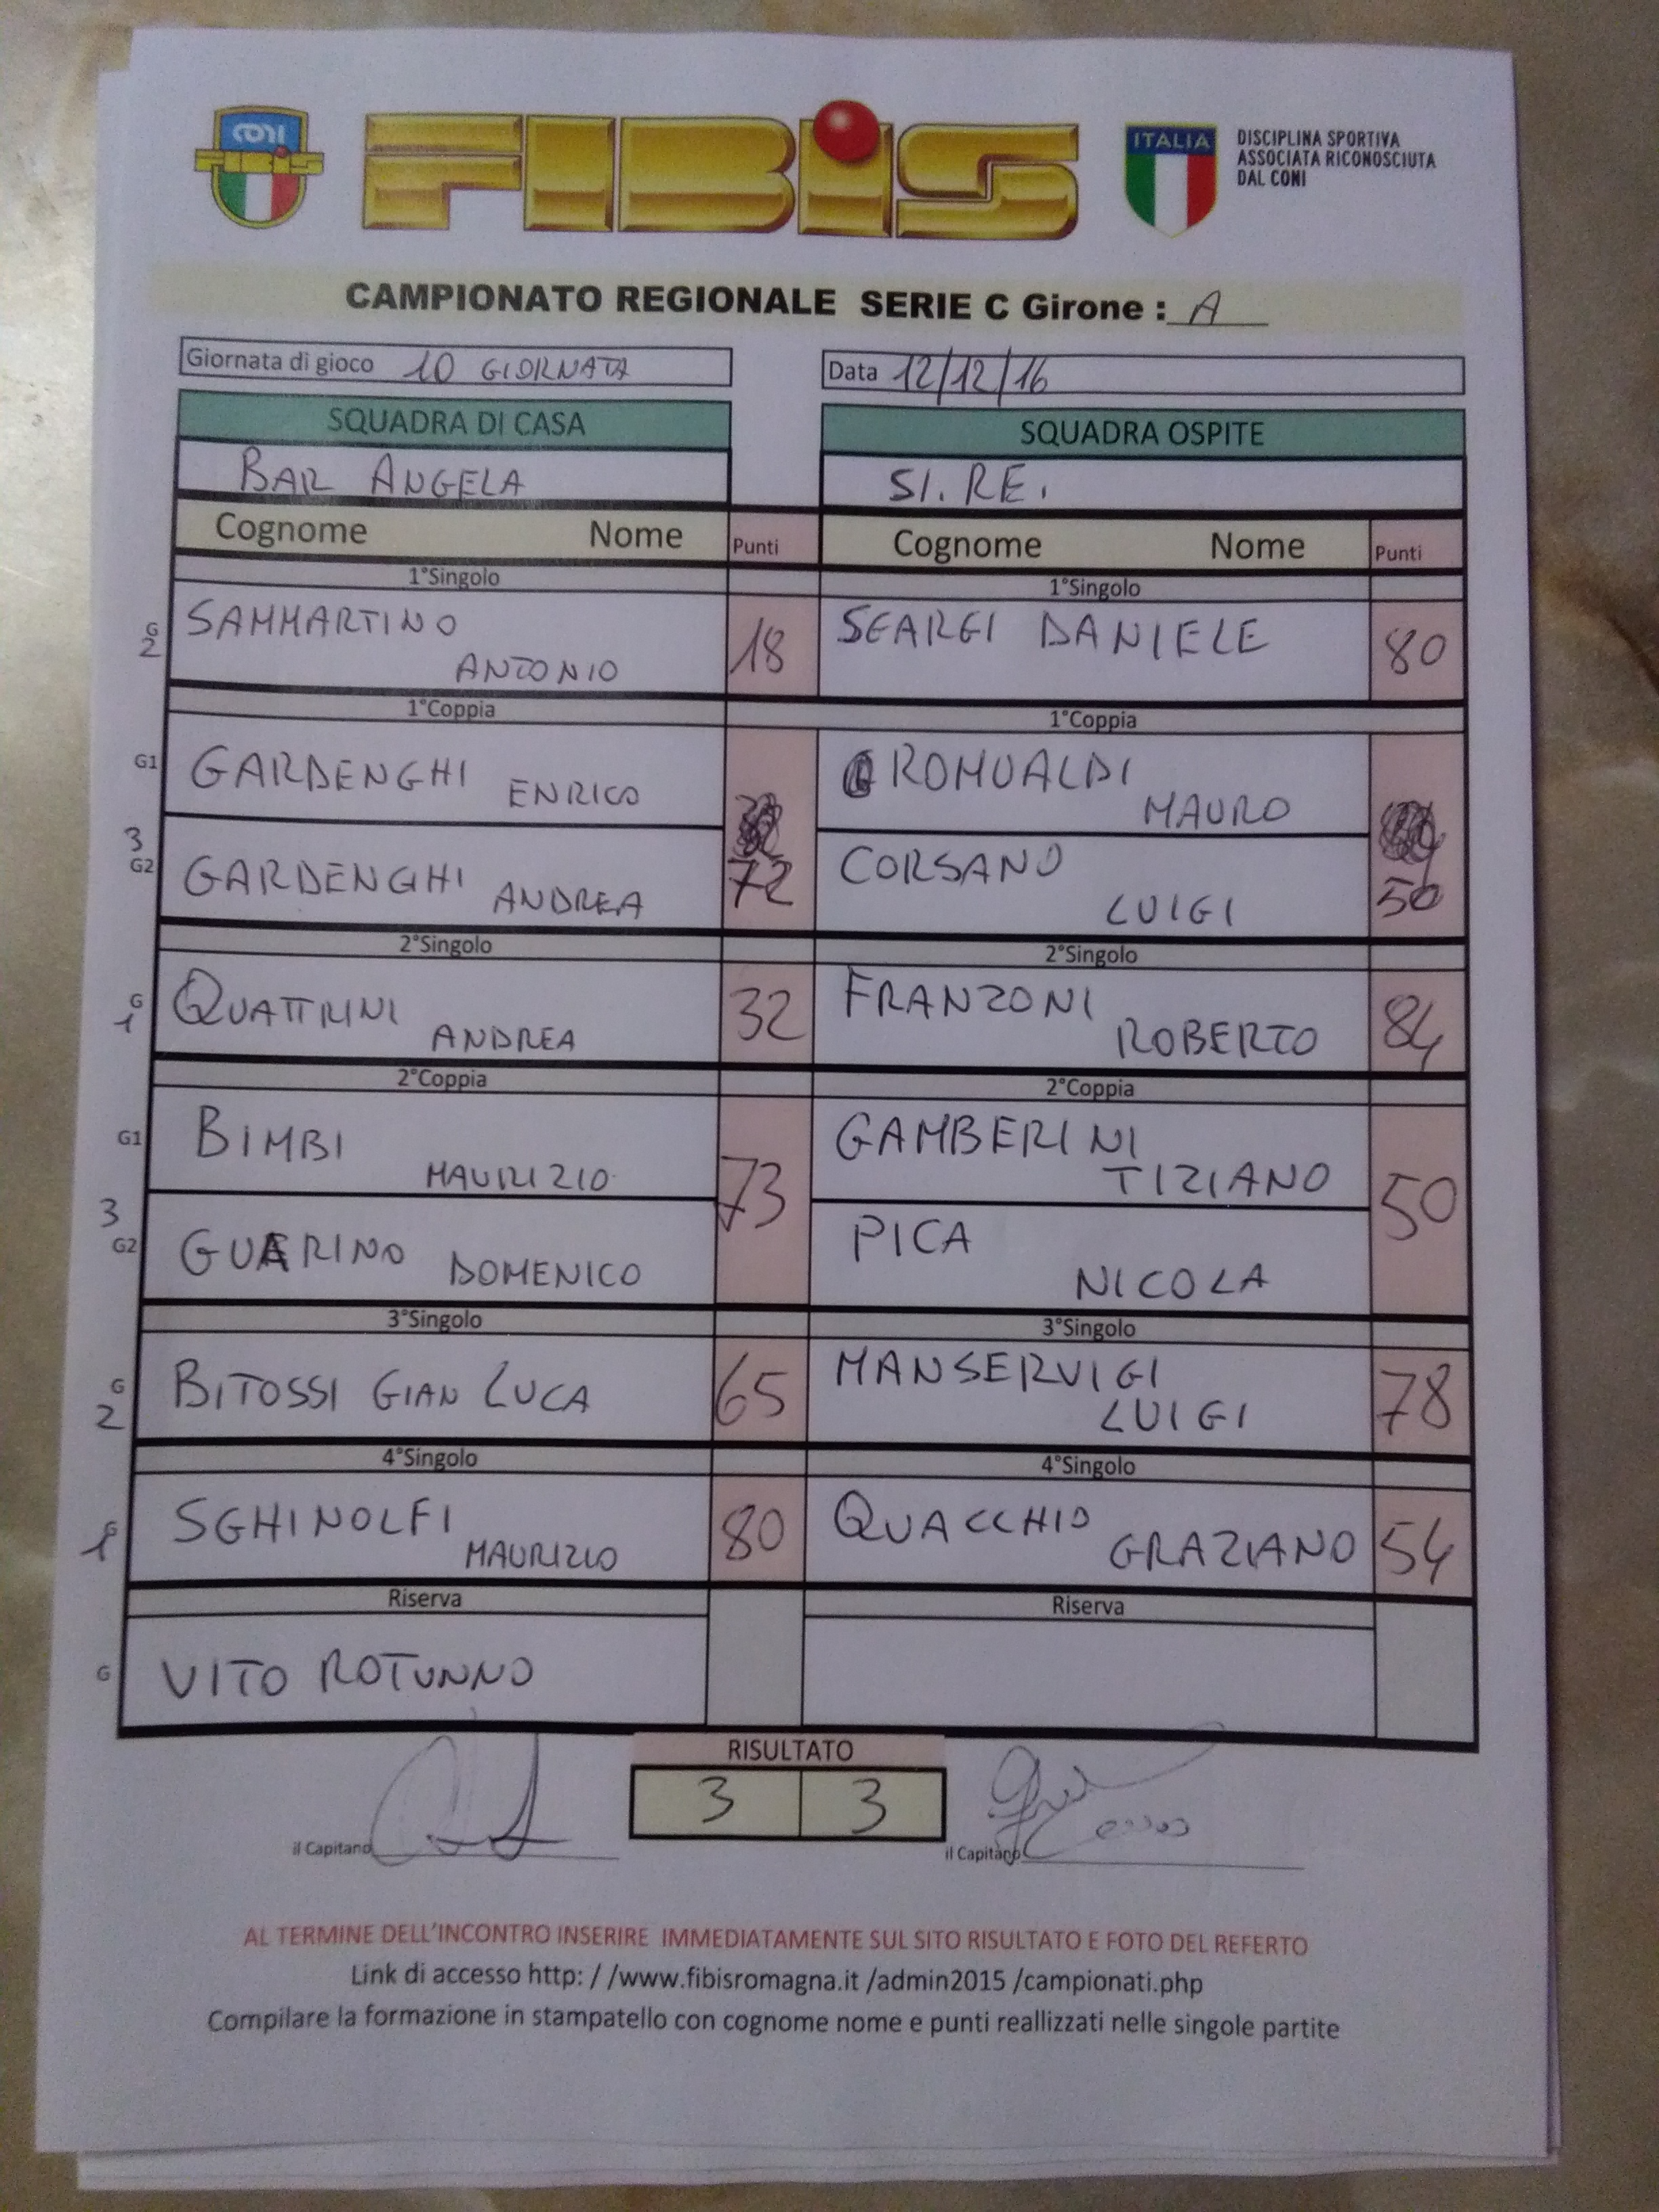 CONI
FIBIS
FIBiS
ITALIA
DISCIPLINA SPORTIVA
ASSOCIATA RICONOSCIUTA
DAL CONI
CAMPIONATO REGIONALE SERIE C Girone : A
Giornata di gioco 10 GIORNATA
Data 12/12/16
SQUADRA DI CASA
SQUADRA OSPITE
BAR ANGELA
SI. RE.
Cognome Nome Punti Cognome Nome Punti
1°Singolo 1°Singolo
G 2 SAMMARTINO ANTONIO 18 SEARGI DANIELE 80
1°Coppia 1°Coppia
G1 GARDENGHI ENRICO ROMUALDI MAURO
3 G2 GARDENGHI ANDREA 72 CORSANO LUIGI 50
2°Singolo 2°Singolo
G 1 QUATTRINI ANDREA 32 FRANZONI ROBERTO 84
2°Coppia 2°Coppia
G1 BIMBI MAURIZIO 73 GAMBERINI TIZIANO 50
3 G2 GUARINO DOMENICO PICA NICOLA
3°Singolo 3°Singolo
G 2 BITOSSI GIAN LUCA 65 MANSERVIGI LUIGI 78
4°Singolo 4°Singolo
G 1 SGHINOLFI MAURIZIO 80 QUACCHIO GRAZIANO 54
Riserva Riserva
G VITO ROTUNNO
RISULTATO
3 3
il Capitano il Capitano
AL TERMINE DELL'INCONTRO INSERIRE IMMEDIATAMENTE SUL SITO RISULTATO E FOTO DEL REFERTO
Link di accesso http: / /www.fibisromagna.it /admin2015 /campionati.php
Compilare la formazione in stampatello con cognome nome e punti reallizzati nelle singole partite